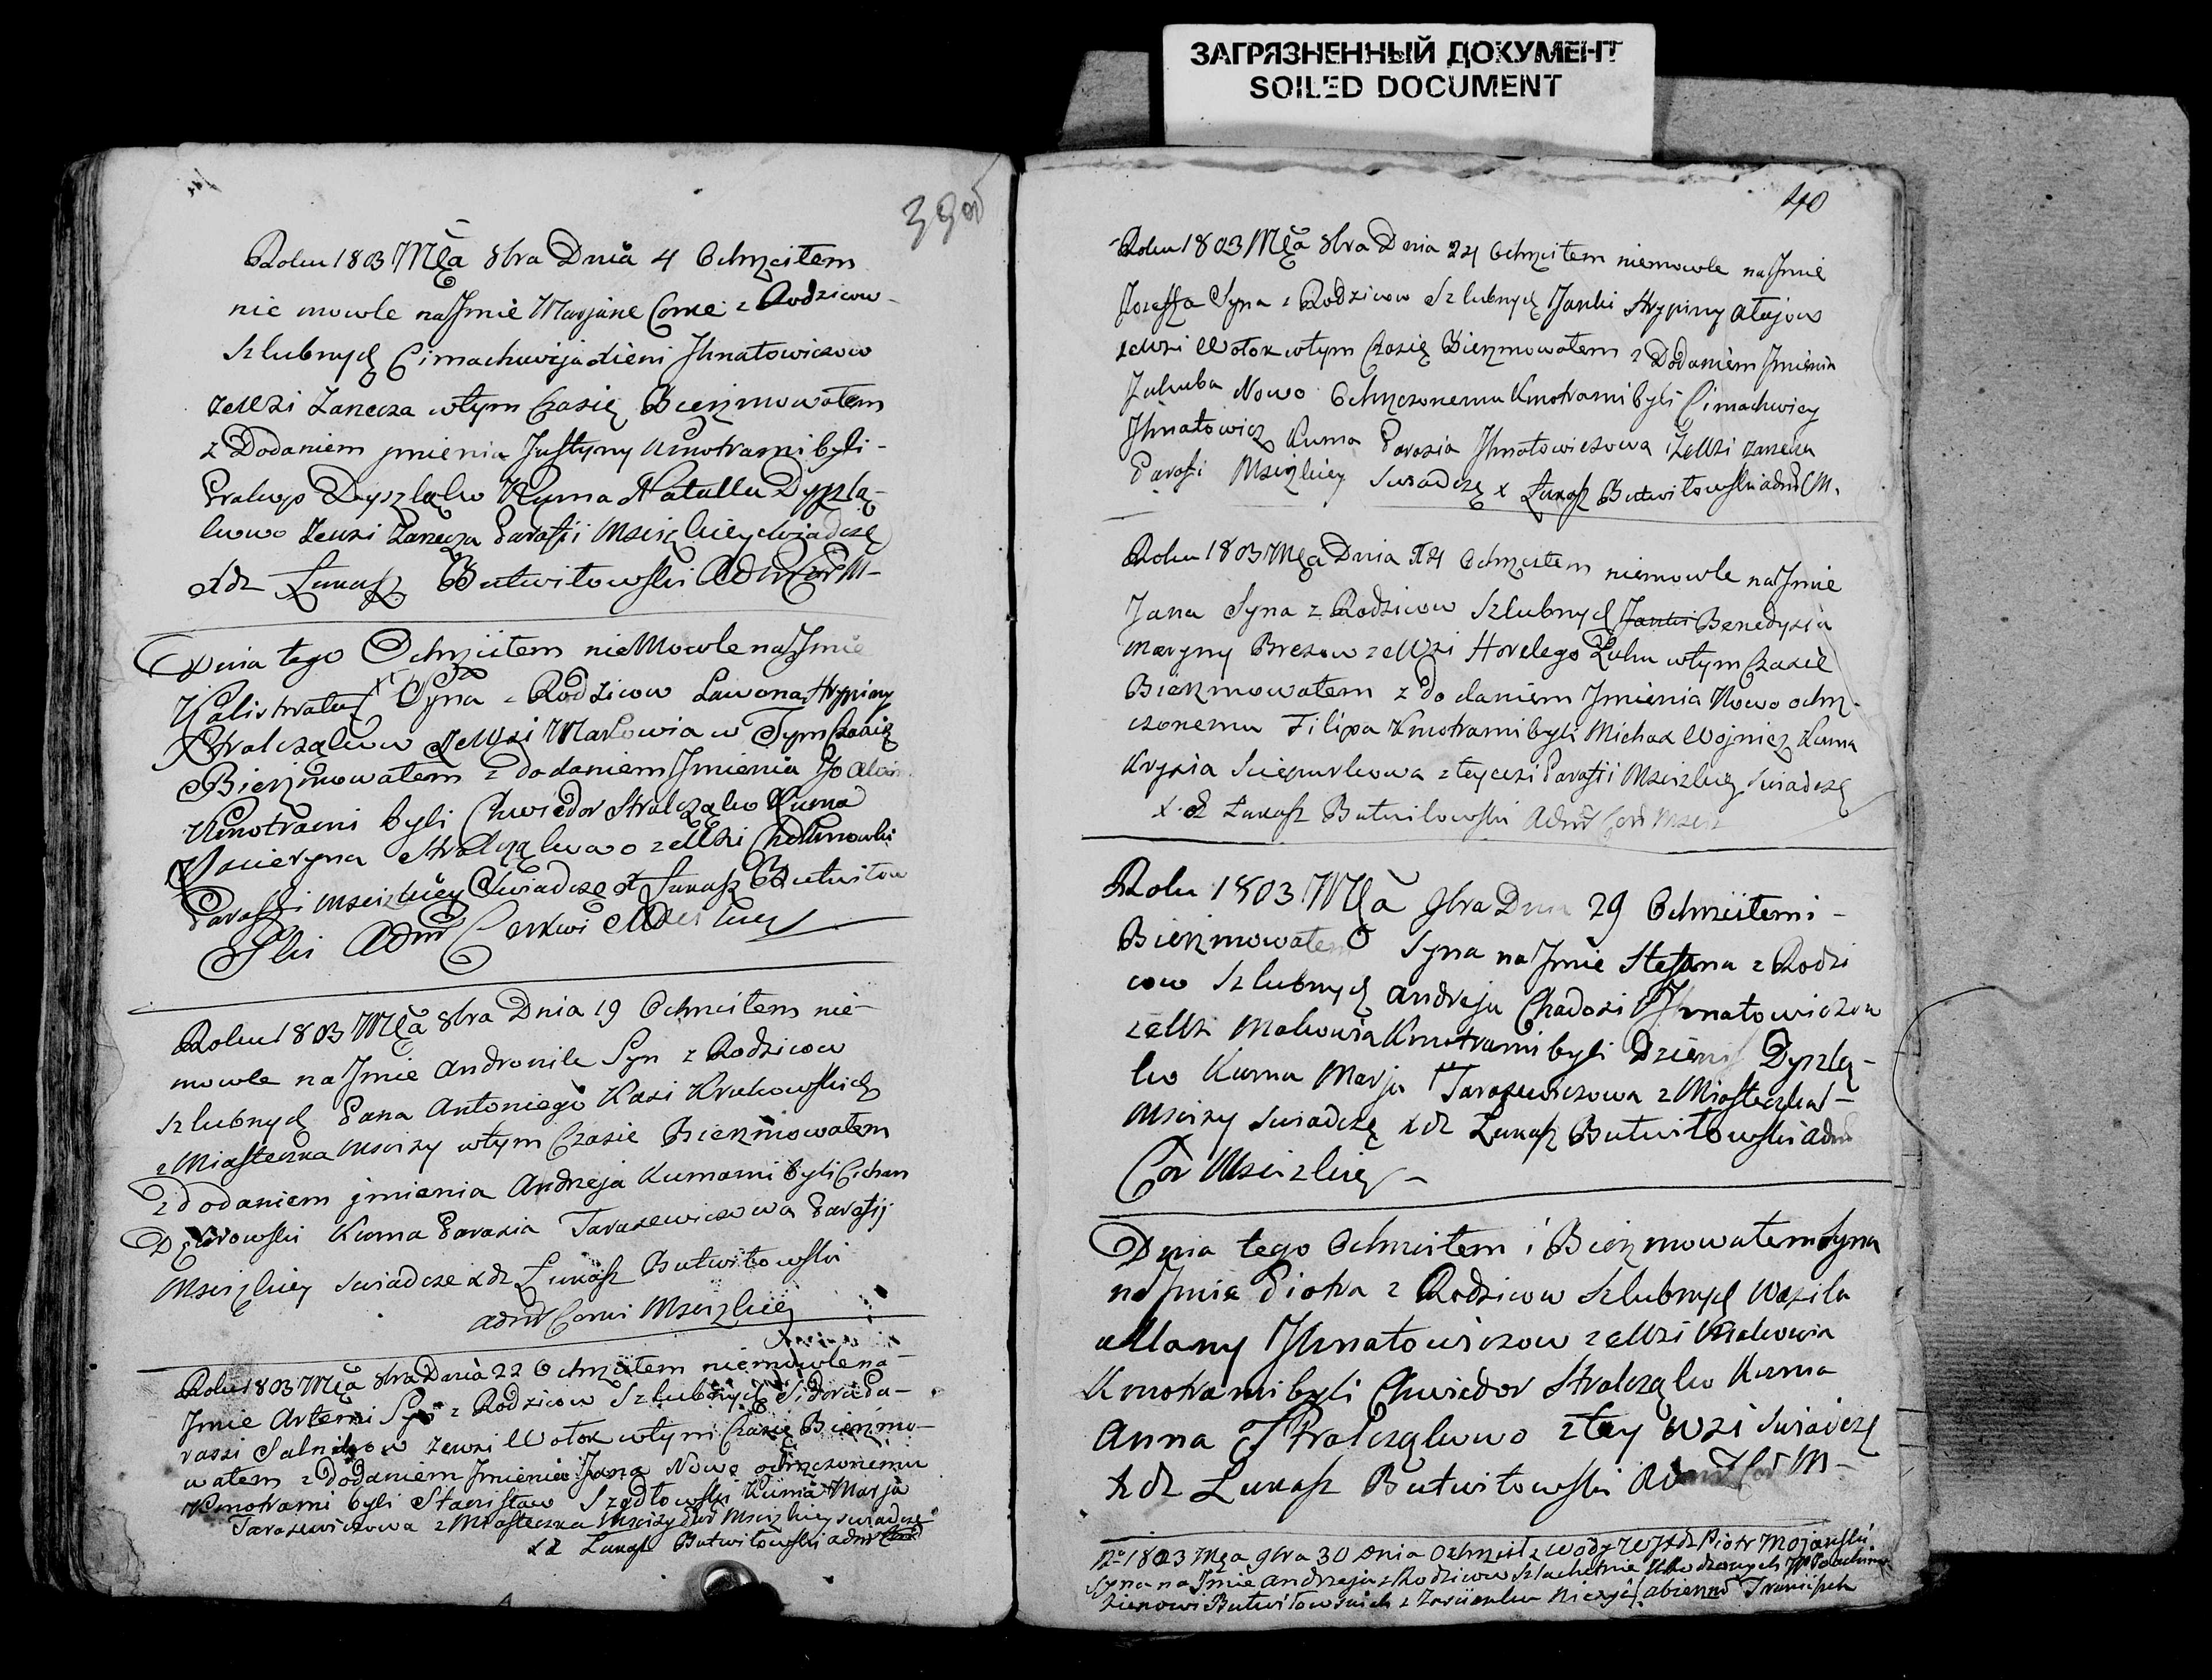 ЗАГРЯЗНЕННЫЙ ДОКУМЕНТ
SOILED DOCUMENT
Roku 1803 Mca 8bra Dnia 4 Ochrzciłem
nie mowle na Jmie Marjane Corke z Rodzicow
Szlubnych Cimachwieja Ihnatowiczow
zeWsi Zarecza wtym Czasie Bierzmowałem
z Dodaniem jmienia Justyny Kmotrami byli
Prakop Dyszlęko Kuma Natalla Dyszlę-
kowo Zewsi Zarecza Parafii Mscizkiey Swiadczę
xdz Łukasz Butwiłowski Admr Cer M-
Dnia tego Ochrzciłem nieMowle na Jmie
Kalistrata Syna z Rodzicow Lawona Hrypiny
Stralczękow zeWsi Makowia w Tym Czasie
Bierzmowałem z dodaniem Jmienia
Kmotrami byli Chwiedor Stralczęko Kuma
Kacieryna Stralczękowo zeWsi
Parafii Mscizkiey Swiadczę x Łukasz Butwiłow
ski Admr Cerkwi Mscizkiey
Roku 1803 Mca 8bra Dnia 19 Ochrzciłem nie-
mowle na Jmie Andronik Syn z Rodzicow
Szlubnych Pana Antoniego Kasi Krukowskich
z Miasteczka Mscizy wtym Czasie Bierzmowałem
z dodaniem jmienia Andrzeja Kumami byli Cichan
Dąbrowski Kuma Parasia Tarasewiczowa Parafij
Mscizkiey swiadcze xdz Łukasz Butwiłowski
admr Cerwi Mscizkiey
Roku 1803 Mca 8bra Dnia 22 Ochrzciłem niemowle na
Jmie Artemi Syn z Rodzicow Szlubnych Sidora Pa-
rassi Salnikow zewsi Wołok wtym Czasie Bierzmo-
wałem z Dodaniem Jmienia Jana Nowo ochrzczonemu
Kmotrami byli Stanisław Szydłowski Kuma Marja
Tarasewiczowa z Miasteczka Mscizy Mscizkiey swiadczę
xd Łukasz Butwiłowski admr
40
Roku 1803 Mca 8bra Dnia 24 Ochrzciłem niemowle na Jmie
Jozeffa Syna z Rodzicow Szlubnych Janki Hrypiny
zeWsi Wołok wtym Czasie Bierzmowałem z Dodaniem Jmienia
Jakuba Nowo Ochrzczonemu Kmotrami byli Cimachwiey
Ihnatowicz Kuma Parasia Ihnatowiczowa zeWsi Zarecza
Parafi Mscizkiey Swiadczę x Łukasz Butwiłowski admr C M.
Roku 1803 Mca Dnia 24 Ochrzciłem niemowle na Jmie
Jana Syna z Rodzicow Szlubnych Janki Benedysia
Maryny Brezow zeWsi Horelego Łuhu wtym Czasie
Bierzmowałem z dodaniem Jmienia Nowo ochrz-
czonemu Filipa Kmotrami byli Michał Woynicz Kuma
Krysia z teyWsi Parafii Mscizkiey Swiadczę
x dz Łukasz Butwiłowski Admr Cer Mscizk
Roku 1803 Mca 9bra Dnia 29 Ochrzciłem i-
Bierzmowałem Syna na Jmie Steffana z Rodzi
cow Szlubnych Andreja Chadosi Ihnatowiczow
zeWsi Makowia Kmotrami byli Dzienis Dyszlę-
ko Kuma Marja Tarasewiczowa z Miasteczka
Mscizy swiadczę xdz Łukasz Butwiłowski Admr
Cer Mscizkiey
Dnia tego Ochrzciłem i Bierzmowałem Syna
na Jmie Piotra z Rodzicow Szlubnych Wasila
ullany Ihnatowiczow zeWsi Makowia
Kmotrami byli Chwiedor Stralczęko Kuma
Anna Stralczękowo z tey Wsi Swiadczę
xdz Łukasz Butwiłowski Admr Cer M-
Ro 1803 Mca 9bra 30 Dnia Ochrzcił z wody Piotr Mojawski
Syna na Jmie Andrzeja z Rodzicow Szlachetnie Urodzonych
Zienowi Butwiłowskich z Zascianku